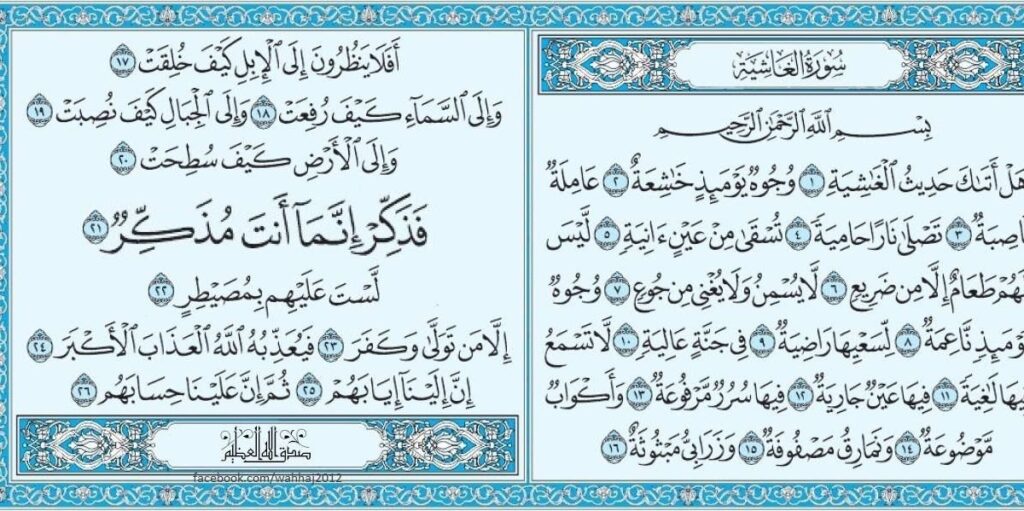 سُورَةُ الغَاشِيَةِ
بِسْمِ اللَّهِ الرَّحْمَٰنِ الرَّحِيمِ
هَلْ أَتَىٰكَ حَدِيثُ الْغَٰشِيَةِ ١ وُجُوهٌ يَوْمَئِذٍ خَٰشِعَةٌ ٢ عَامِلَةٌ
اصِبَةٌ ٣ تَصْلَىٰ نَارًا حَامِيَةً ٤ تُسْقَىٰ مِنْ عَيْنٍ ءَانِيَةٍ ٥ لَّيْسَ
هُمْ طَعَامٌ إِلَّا مِن ضَرِيعٍ ٦ لَّا يُسْمِنُ وَلَا يُغْنِى مِن جُوعٍ ٧ وُجُوهٌ
وْمَئِذٍ نَّاعِمَةٌ ٨ لِّسَعْيِهَا رَاضِيَةٌ ٩ فِى جَنَّةٍ عَالِيَةٍ ١٠ لَّا تَسْمَعُ
يهَا لَٰغِيَةً ١١ فِيهَا عَيْنٌ جَارِيَةٌ ١٢ فِيهَا سُرُرٌ مَّرْفُوعَةٌ ١٣ وَأَكْوَابٌ
مَّوْضُوعَةٌ ١٤ وَنَمَارِقُ مَصْفُوفَةٌ ١٥ وَزَرَابِىُّ مَبْثُوثَةٌ ١٦
أَفَلَا يَنظُرُونَ إِلَى الْإِبِلِ كَيْفَ خُلِقَتْ ١٧
وَإِلَى السَّمَآءِ كَيْفَ رُفِعَتْ ١٨ وَإِلَى الْجِبَالِ كَيْفَ نُصِبَتْ ١٩
وَإِلَى الْأَرْضِ كَيْفَ سُطِحَتْ ٢٠
فَذَكِّرْ إِنَّمَآ أَنتَ مُذَكِّرٌ ٢١
لَّسْتَ عَلَيْهِم بِمُصَيْطِرٍ ٢٢
إِلَّا مَن تَوَلَّىٰ وَكَفَرَ ٢٣ فَيُعَذِّبُهُ اللَّهُ الْعَذَابَ الْأَكْبَرَ ٢٤
إِنَّ إِلَيْنَآ إِيَابَهُمْ ٢٥ ثُمَّ إِنَّ عَلَيْنَا حِسَابَهُم ٢٦
صدق الله العظيم
facebook.com/wahhaj2012